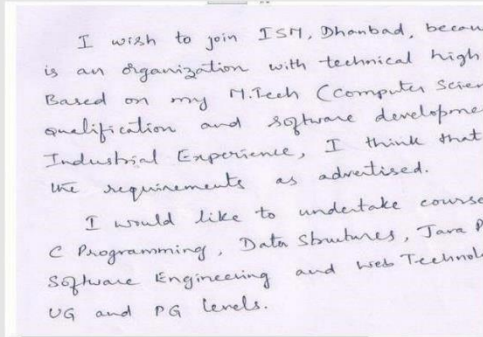 I wish to join ISM, Dhanbad, becau
is an organization with technical high
Based on my M.Tech (Computer Scien
qualification and software developme
Industrial Experience, I think that
the requirements as advertised.
I would like to undertake course
C Programming, Data Structures, Java P
Software Engineering and web Technol
UG and PG levels.